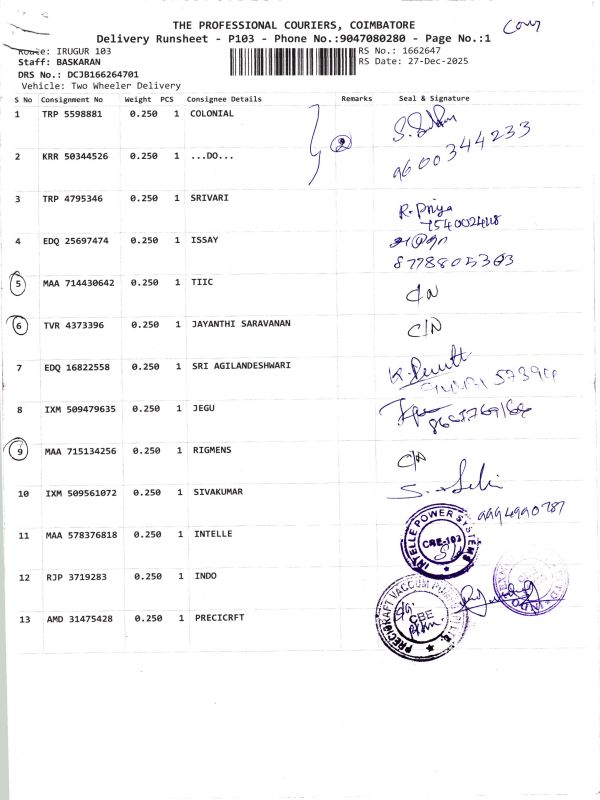 THE PROFESSIONAL COURIERS, COIMBATORE
Delivery Runsheet - P103 - Phone No.:9047080280 - Page No.:1
Route: IRUGUR 103
RS No.: 1662647
Staff: BASKARAN
RS Date: 27-Dec-2025
DRS No.: DCJB166264701
Vehicle: Two Wheeler Delivery
S No Consignment No Weight PCS Consignee Details Remarks Seal & Signature
1 TRP 5598881 0.250 1 COLONIAL
2
9600344233
2 KRR 50344526 0.250 1 ...DO...
3 TRP 4795346 0.250 1 SRIVARI
R. Priya
4 EDQ 25697474 0.250 1 ISSAY
8778805303
5 MAA 714430642 0.250 1 TIIC C/N
6 TVR 4373396 0.250 1 JAYANTHI SARAVANAN C/N
7 EDQ 16822558 0.250 1 SRI AGILANDESHWARI
8 IXM 509479635 0.250 1 JEGU
9 MAA 715134256 0.250 1 RIGMENS C/N
10 IXM 509561072 0.250 1 SIVAKUMAR
9994990787
11 MAA 578376818 0.250 1 INTELLE
INTELLE POWER SYSTEMS
CBE-103
12 RJP 3719283 0.250 1 INDO
13 AMD 31475428 0.250 1 PRECICRFT
CBE